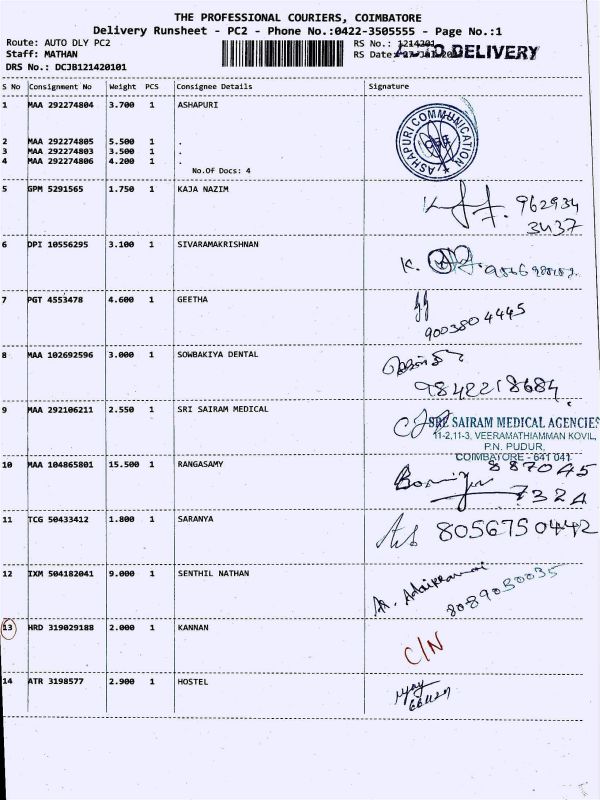 THE PROFESSIONAL COURIERS, COIMBATORE
Delivery Runsheet - PC2 - Phone No.:0422-3505555 - Page No.:1
Route: AUTO DLY PC2 RS No.: 1214201
Staff: MATHAN RS Date: DELIVERY
DRS No.: DCJB121420101
S No Consignment No Weight PCS Consignee Details Signature
1 MAA 292274804 3.700 1 ASHAPURI
ASHAPURI COMMUNICATION
2 MAA 292274805 5.500 1 .
3 MAA 292274803 3.500 1 .
4 MAA 292274806 4.200 1 .
No.Of Docs: 4
5 GPM 5291565 1.750 1 KAJA NAZIM
962934
3437
6 DPI 10556295 3.100 1 SIVARAMAKRISHNAN
K.
7 PGT 4553478 4.600 1 GEETHA
9003804445
8 MAA 102692596 3.000 1 SOWBAKIYA DENTAL
9842218684
9 MAA 292106211 2.550 1 SRI SAIRAM MEDICAL
SRI SAIRAM MEDICAL AGENCIES
11-2,11-3, VEERAMATHIAMMAN KOVIL,
P.N. PUDUR,
COIMBATORE - 641 041
10 MAA 104865801 15.500 1 RANGASAMY
887045
7324
11 TCG 50433412 1.800 1 SARANYA
8056750442
12 IXM 504182041 9.000 1 SENTHIL NATHAN
8089030035
13 HRD 319029188 2.000 1 KANNAN
C/N
14 ATR 3198577 2.900 1 HOSTEL